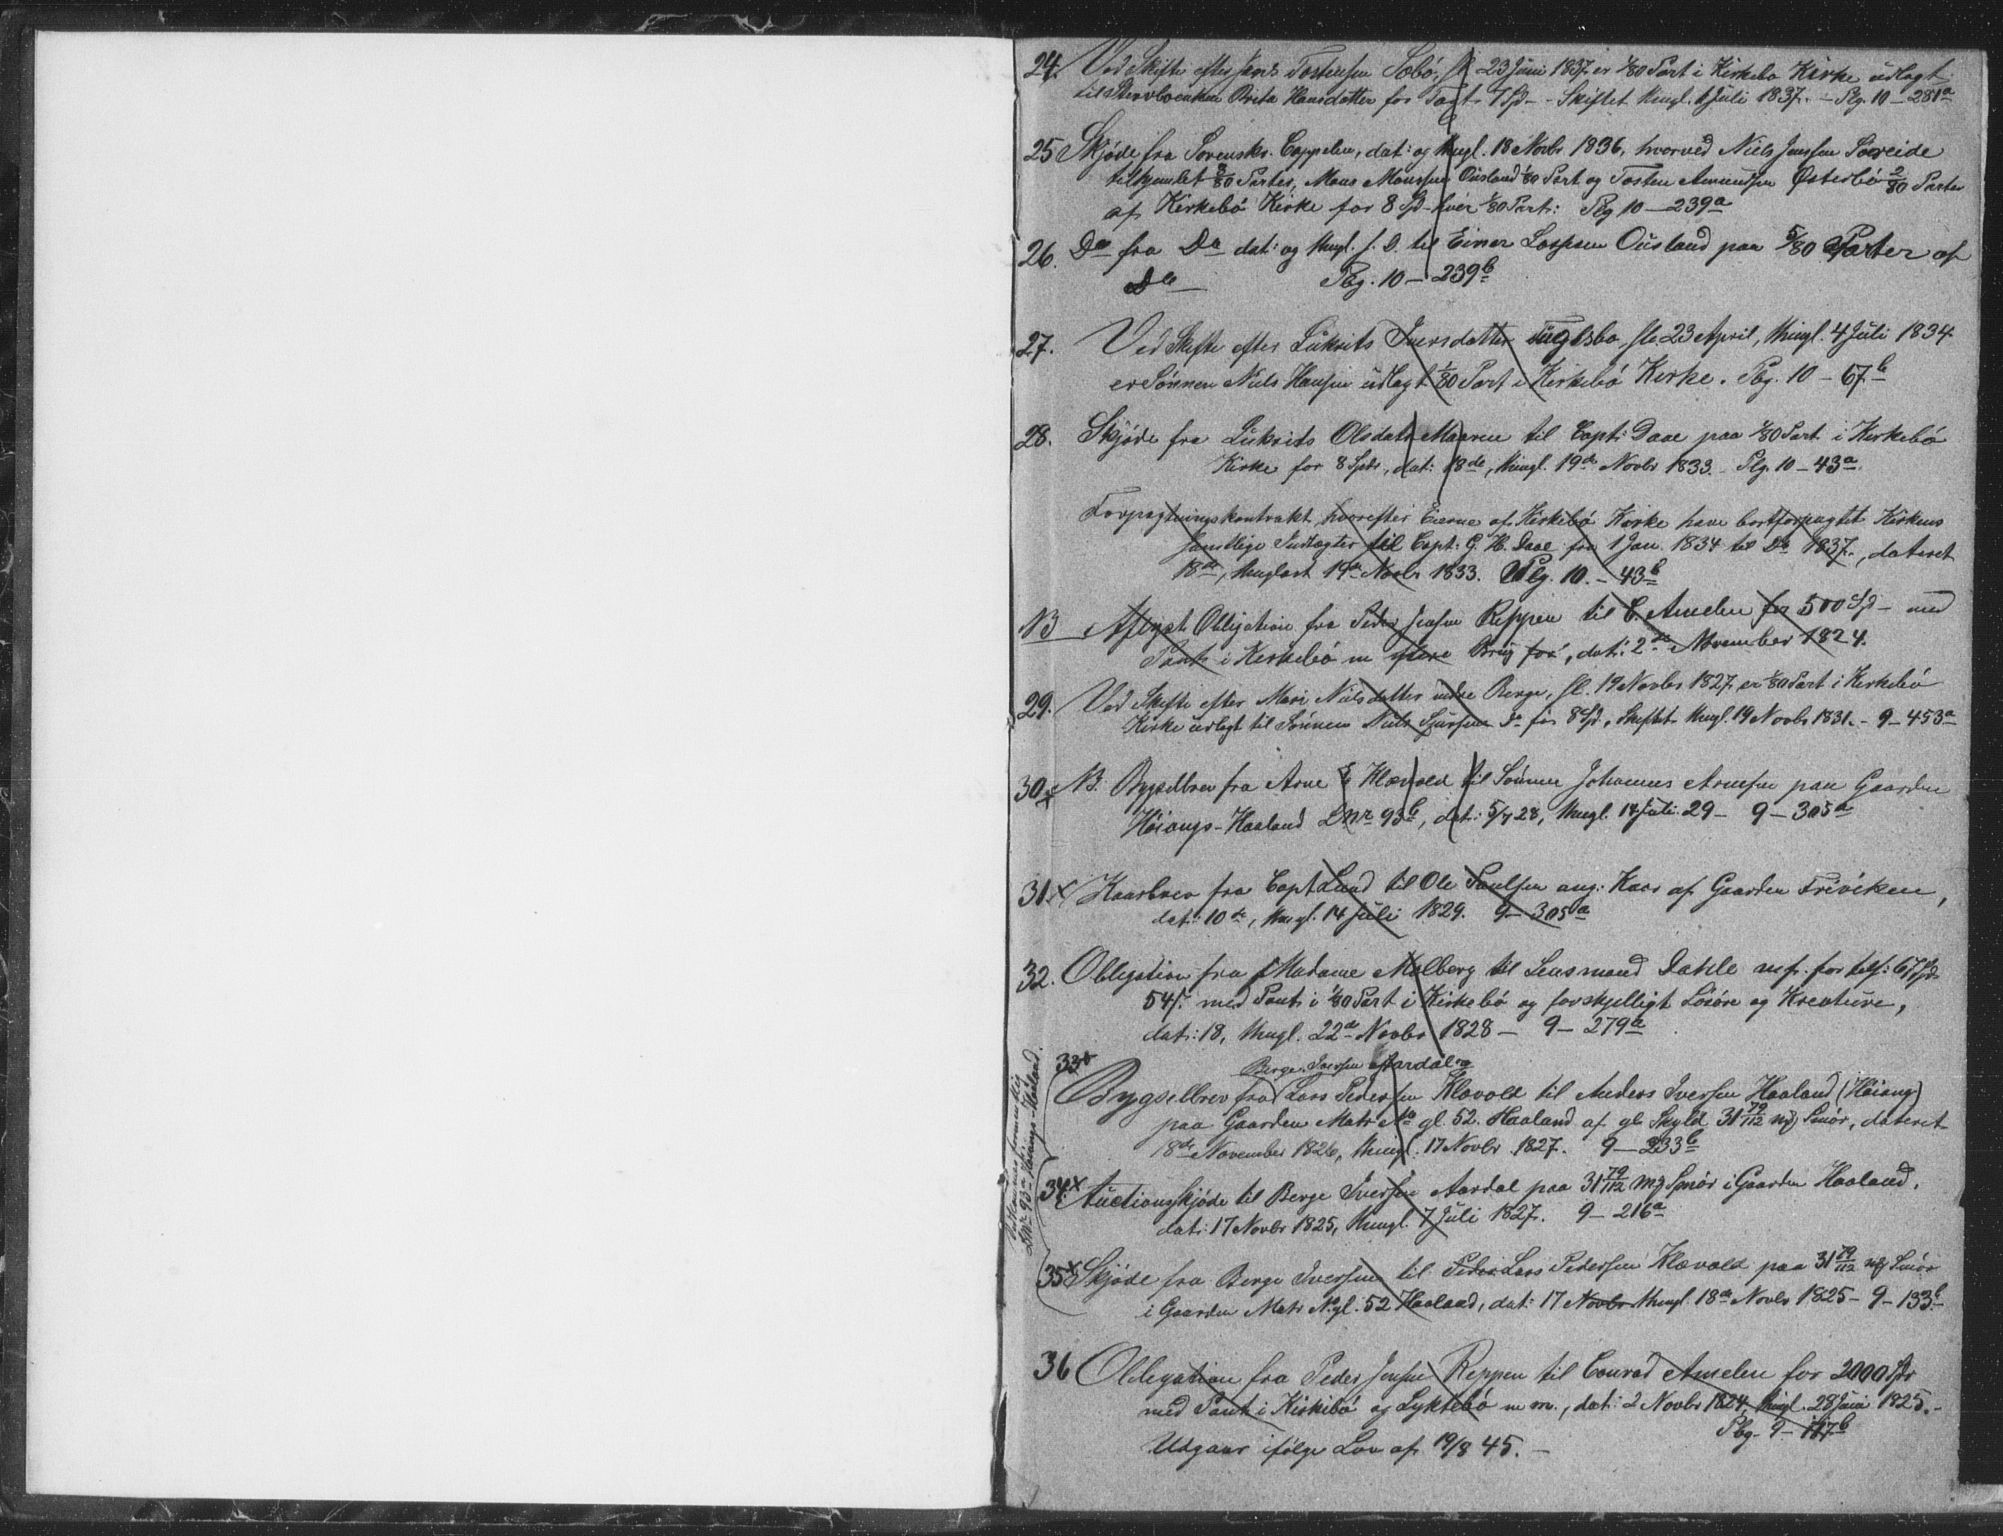 24. Ved Skifte efter Jens Tostensen Sæbö, sl. 23 Juni 1837 er 1/80 Part i Kirkebø Kirke udlagt
til Stervboenken Brita Hansdatter for Taxt 7 Spd - Skiftet thingl. 1 Juli 1837. - Pbg. 10 - 281a
25 Skjöde fra Sorenskr. Cappelen, dat: og thingl. 18 Novbr 1836, hvorved Niels Jenssen Söreide
tilhjemlet 3/80 Parter, Mons Monssen Ousland 1/80 Part og Tosten Amundsen Österbö 2/80 Parter
af Kirkebö Kirke for 8 Spd hver 1/80 Part: Pbg 10 - 239a
26. Do fra Do dat: og thingl. s. D. til Einer Lassesen Ousland paa 5/80 Parter af
Do Pbg. 10 - 239b
27. Ved Skifte efter Lukrits Iversdatter Fuglsbø, sl. 23 April, thingl. 4 Juli 1834
er Sönnen Niels Hansen udlagt 1/80 Part i Kirkebö Kirke. Pbg. 10 - 67b
28. Skjöde fra Lukrits Olsdatter Maaren til Capt: Daae paa 1/80 Part i Kirkebö
Kirke for 8 Spdr, dat: 18de, thingl. 19de Novbr 1833. Pbg. 10 - 43a.
Forpagtningskontrakt, hvorefter Eierne af Kirkebö Kirke have bortforpagtet Kirkens
samtlige Indtægter til Capt: G. H. Daae fra 1 Jan. 1834 til Do 1837, dateret
18de, thinglæst 19de Novbr 1833. Pbg. 10. - 43b
NB Aflyst Obligation fra Peder Jensen Reppen til C. Amelen for 500 Spd - med
Pant i Kirkebö m flere Brug, dat: 2de November 1824.
29. Ved Skifte efter Mari Nielsdatter indre Berge, sl. 19 Novbr 1827, er 1/80 Part i Kirkebö
Kirke udlagt til Sönnen Niels Sjursen Do for 8 Spd, Skiftet thingl. 19 Novbr 1831. - 9 - 453a
30x NB. Bygselbrev fra Arne Klævold til Sönnen Johannes Arnesen paa Gaarden
Höiangs-Haaland Lnr 93b, dat: 5/7 28, thingl. 14 Juli 29 - 9 - 305a
31x Kaarbrev fra Capt Lund til Ole Paulsen ang: Kaar af Gaarden Friviken,
dat: 10de, thingl. 14 Juli 1829. 9 - 305a
32. Obligation fra Madame Malberg til Lensmand Dahle m. fl. for tils: 67 Spd-
54 s. med Pant i 1/80 Part i Kirkebö og forskjelligt Lösöre og Kreature,
dat: 18, thingl. 22de Novbr 1828 - 9 - 279a
33x Berge Iversen Aardal og
Bygselbrev fra Lars Pedersen Klævold til Anders Iversen Haaland (Höiang)
paa Gaarden Matr No gl 52. Haaland af gl Skyld 31 79/112 mf Smör, dateret
18de November 1826, thingl. 17 Novbr 1827. 9 - 233b
34x Auctionsskjöde til Berge Iversen Aardal paa 31 79/112 mf Smör i Gaarden Haaland,
dat: 17 Novbr 1825, thingl. 7 Juli 1827. 9 - 216a
35x Skjöde fra Berge Iversen til Peder Lars Pedersen Klævold paa 31 79/112 mf Smör
i Gaarden Matr No gl. 52 Haaland, dat: 17 Novbr thingl. 18de Novbr 1825 - 9 - 133b
Vedkommer formentlig
Lnr 93a Höiangs-Haaland.
36 Obligation fra Peder Jensen Reppen til Conrad Amelen for 2000 Spd
med Pant i Kirkebö og Lyktebö m m., dat: 2 Novbr 1824, thingl. 28 Juni 1825. -
Pbg. 9 - 117b
Udgaar ifölge Lov af 19/8 45. -